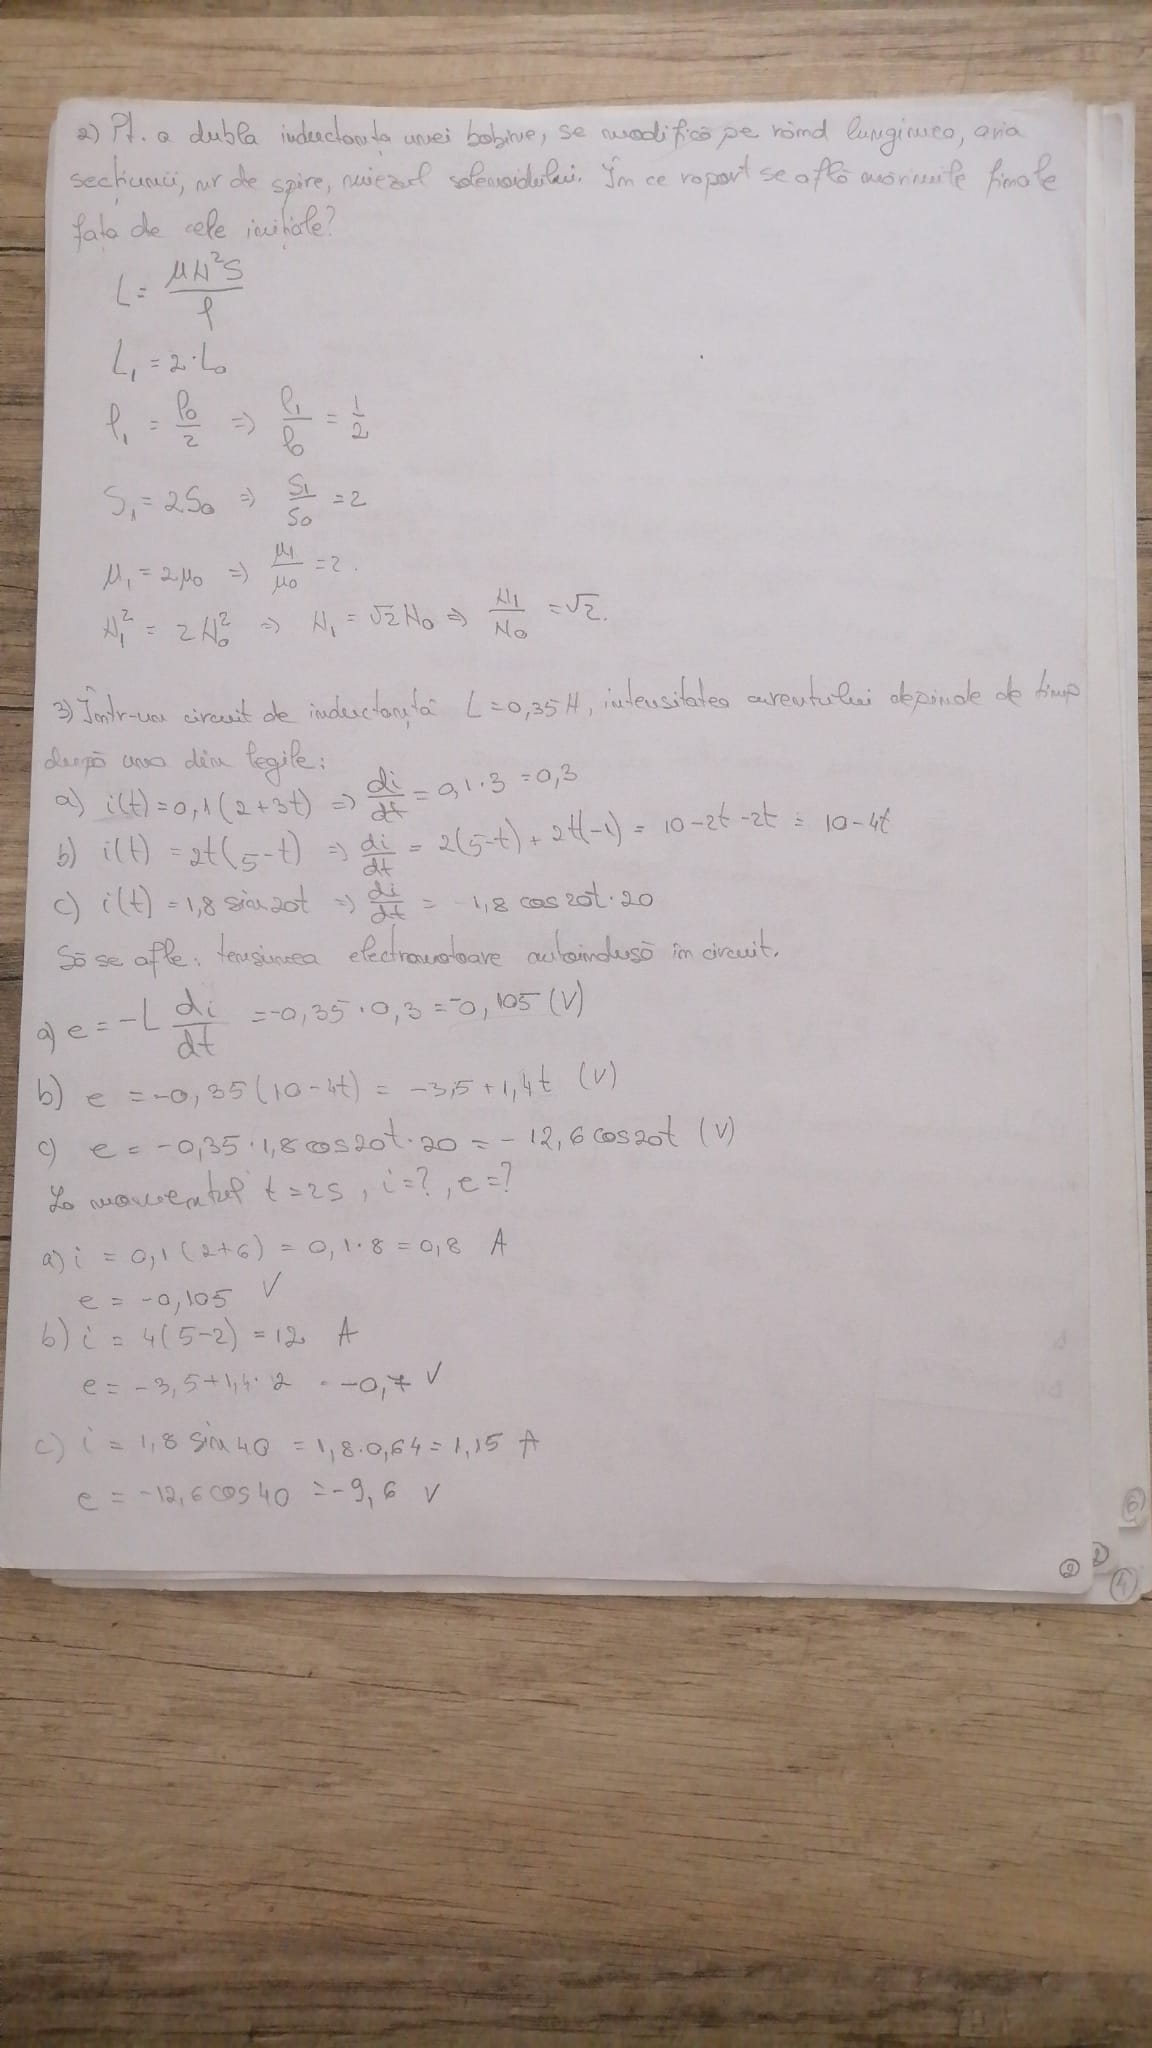 2) Pt. a dubla inductanța unei bobine, se modifică pe rând lungimea, aria
secțiunii, nr de spire, miezul solenoidului. În ce raport se află mărimile finale
față de cele inițiale?
L = μN²S / l
L₁ = 2·L₀
l₁ = l₀/2 => l₁/l₀ = 1/2
S₁ = 2S₀ => S₁/S₀ = 2
μ₁ = 2μ₀ => μ₁/μ₀ = 2.
N₁² = 2N₀² => N₁ = √2N₀ => N₁/N₀ = √2.
3) Într-un circuit de inductanță L = 0,35 H, intensitatea curentului depinde de timp
după una din legile:
a) i(t) = 0,1(2+3t) => di/dt = 0,1·3 = 0,3
b) i(t) = 2t(5-t) => di/dt = 2(5-t) + 2t(-1) = 10-2t-2t = 10-4t
c) i(t) = 1,8 sin 20t => di/dt = 1,8 cos 20t·20
Să se afle: tensiunea electromotoare autoindusă în circuit.
a) e = -L di/dt = -0,35·0,3 = -0,105 (V)
b) e = -0,35(10-4t) = -3,5+1,4t (V)
c) e = -0,35·1,8 cos 20t·20 = -12,6 cos 20t (V)
La momentul t = 2s, i=?, e=?
a) i = 0,1(2+6) = 0,1·8 = 0,8 A
e = -0,105 V
b) i = 4(5-2) = 12 A
e = -3,5+1,4·2 = -0,7 V
c) i = 1,8 sin 40 = 1,8·0,64 = 1,15 A
e = -12,6 cos 40 = -9,6 V
6
2
4